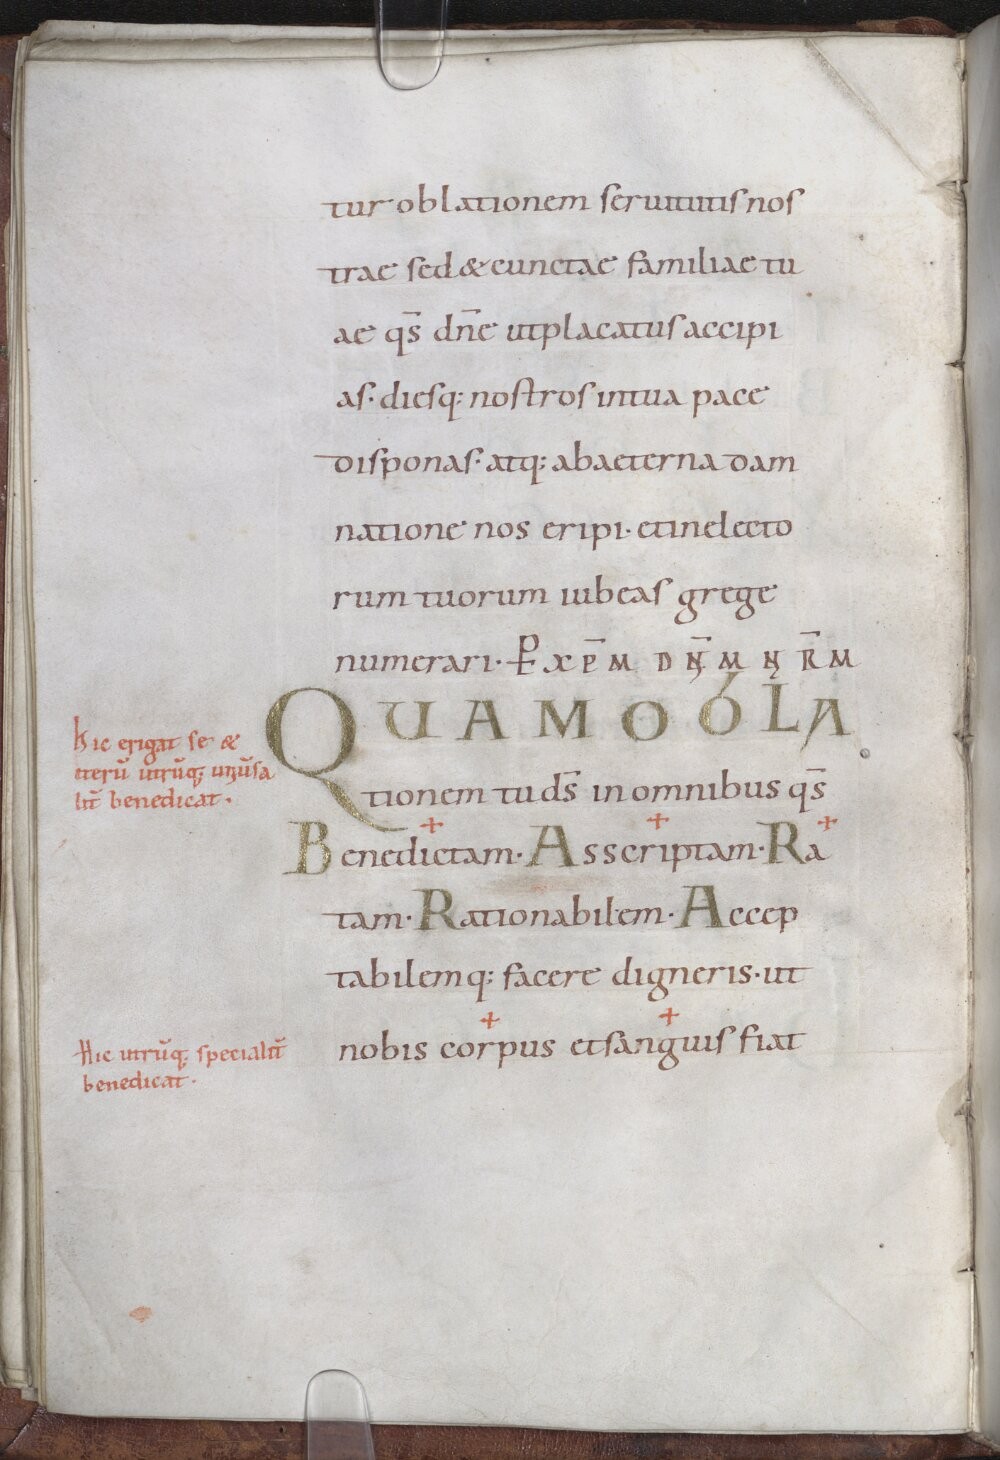 tur oblationem seruitutis nos
trae sed & cunctae familiae tu
ae q̄s dn̄e ut placatus accipi
as· diesq; nostros in tua pace
disponas· atq; ab aeterna dam
natione nos eripi· et in electo
rum tuorum iubeas grege
numerari· P̲ XP̄M DN̄M NR̄M
QUAM OBLA
tionem tu ds̄ in omnibus q̄s
Benedictam· Asscriptam· Ra
tam· Rationabilem· Accep
tabilemq; facere digneris· ut
nobis corpus et sanguis fiat
Hic erigat se &
iterū utrūq; uniūsa
lit̄ benedicat·
Hic utrūq; specialit̄
benedicat·